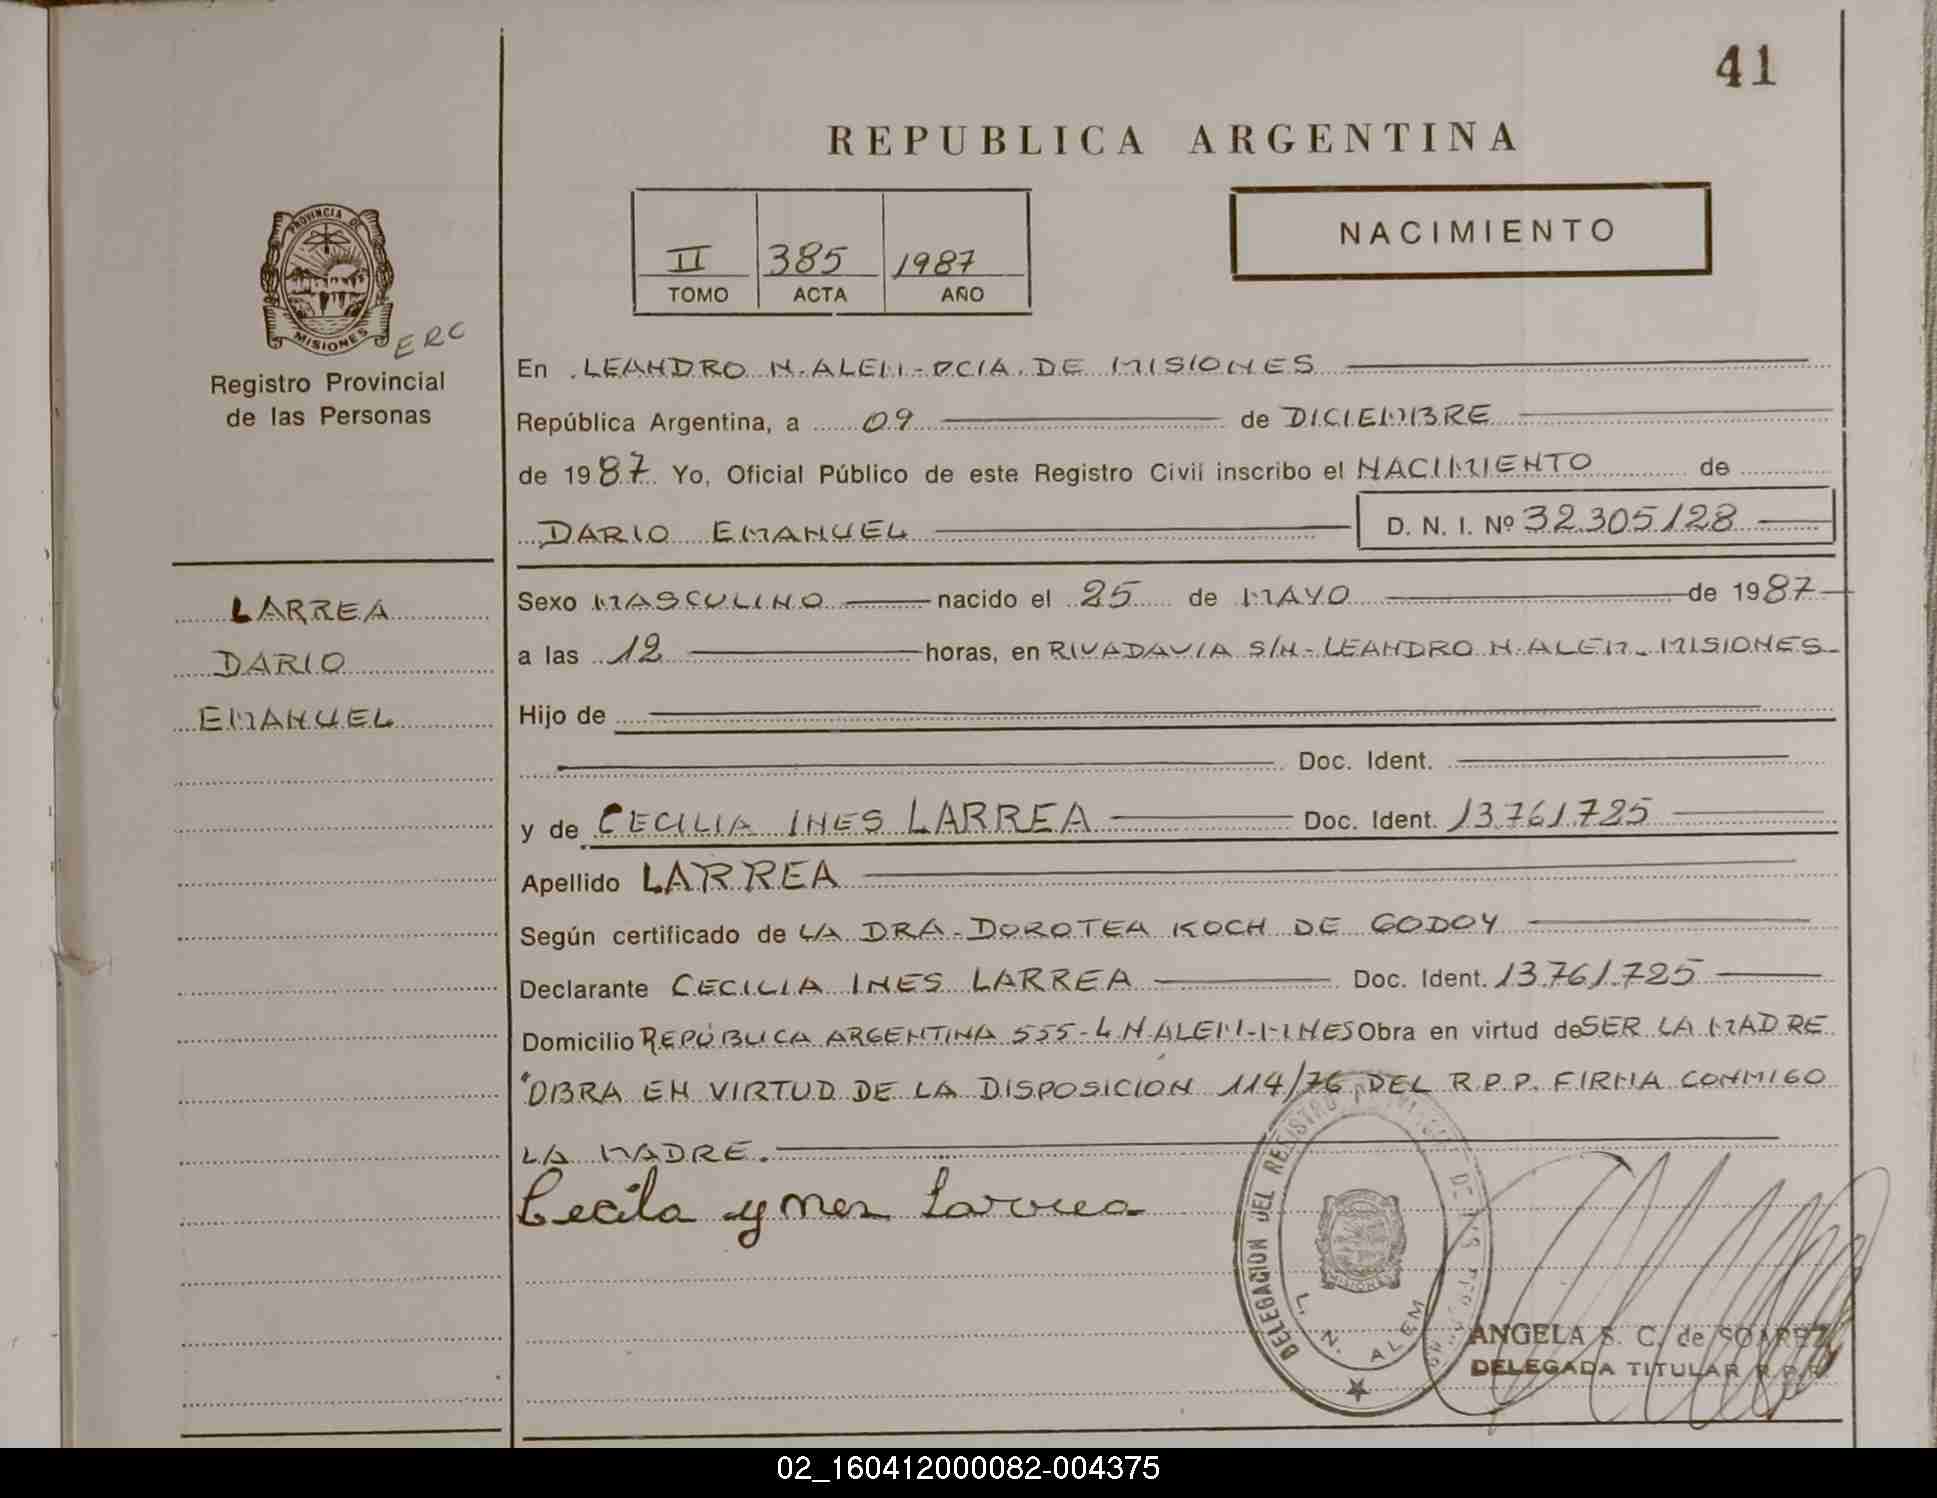 41
REPUBLICA ARGENTINA
NACIMIENTO
II 385 1987
TOMO ACTA AÑO
PROVINCIA DE
MISIONES
ERC
Registro Provincial
de las Personas
LARREA
DARIO
EMANUEL
En LEANDRO N. ALEM - PCIA. DE MISIONES
República Argentina, a 09 de DICIEMBRE
de 1987 Yo, Oficial Público de este Registro Civil inscribo el NACIMIENTO de
DARIO EMANUEL D. N. I. Nº 32.305.128
Sexo MASCULINO nacido el 25 de MAYO de 1987
a las 12 horas, en RIVADAVIA S/N - LEANDRO N. ALEM - MISIONES
Hijo de
Doc. Ident.
y de CECILIA INES LARREA Doc. Ident. 13.761.725
Apellido LARREA
Según certificado de LA DRA. DOROTEA KOCH DE GODOY
Declarante CECILIA INES LARREA Doc. Ident. 13.761.725
Domicilio REPÚBLICA ARGENTINA 555 - L.N. ALEM - MNES Obra en virtud de SER LA MADRE
"OBRA EN VIRTUD DE LA DISPOSICION 114/76 DEL R.P.P. FIRMA CONMIGO
LA MADRE.
Cecila ynes Larrea
DELEGACION DEL REGISTRO DE LAS
MISIONES
L. N. ALEM
ANGELA S. C. de SOAREZ
DELEGADA TITULAR R.P.P.
02_160412000082-004375